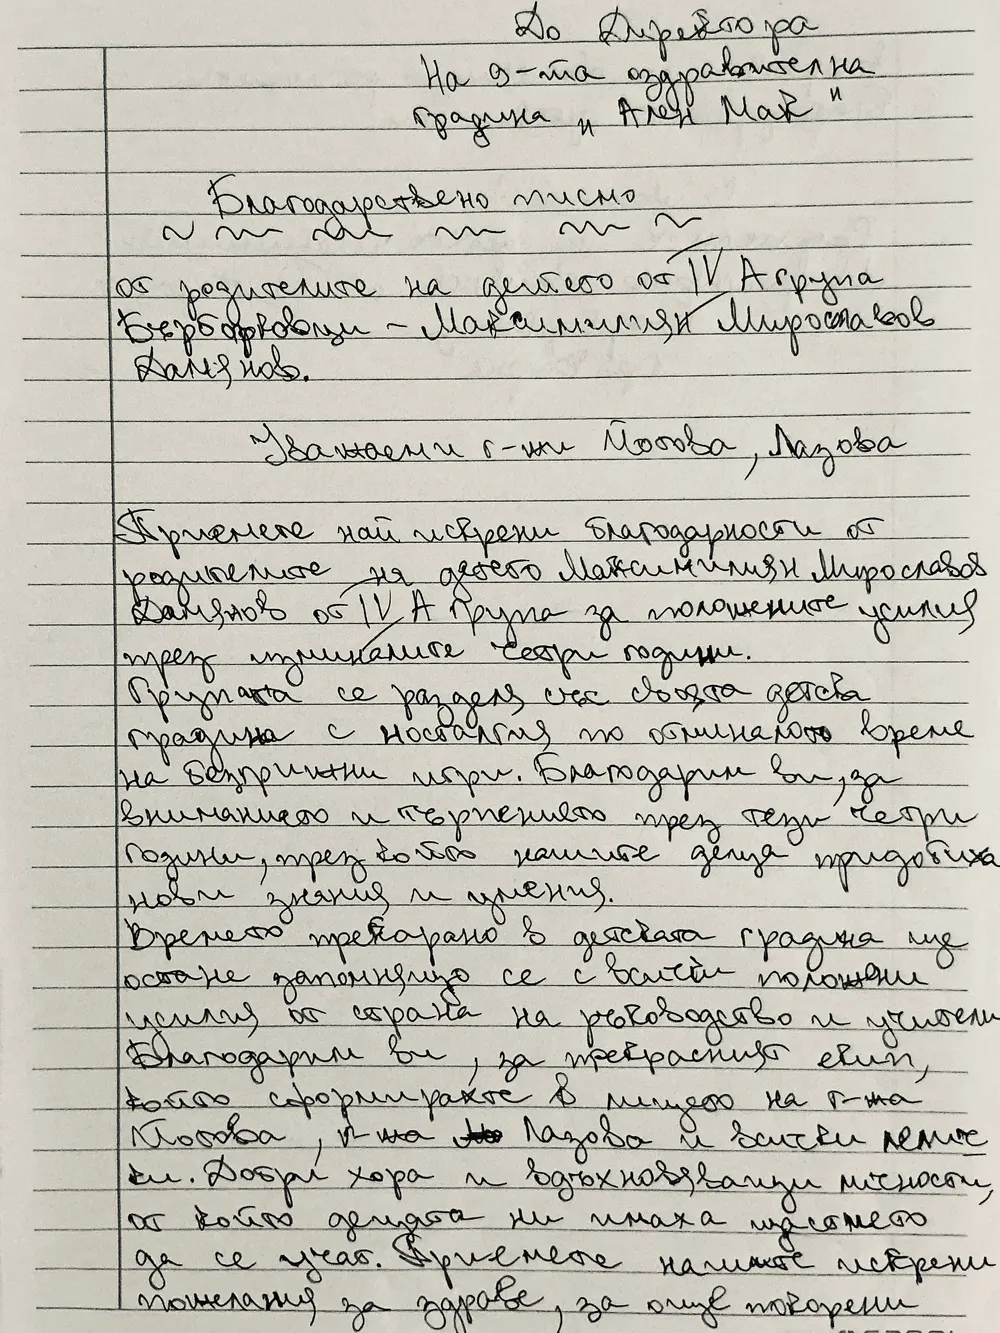 До Директора
На 9-та оздравителна
градина „ Ален Мак "
Благодарствено писмо
от родителите на детето от IV А група
Бърборковци - Максимилиян Мирославов
Дамянов.
Уважаеми г-жи Йотова, Лазова
Приемете най искрени благодарности от
родителите на детето Максимилиян Мирославов
Дамянов от IV А група за положените усилия
през изминалите четри години.
Групата се разделя със своята детска
градина с носталгия по отминалото време
на безгрижни игри. Благодарим ви, за
вниманието и търпението през тези четри
години, през който нашите деца придобиха
нови знания и умения.
Времето прекарано в детската градина ще
остане запомнящо се с всички положени
усилия от страна на ръководство и учители
Благодарим ви, за прекрасният екип,
който сформирахте в лицето на г-жа
Йотова, г-жа Лазова и всички лелич-
ки. Добри хора и вдъхновяващи личности,
от който децата ни имаха щастието
да се учат. Приемете нашите искрени
пожелания за здраве, за още покорени